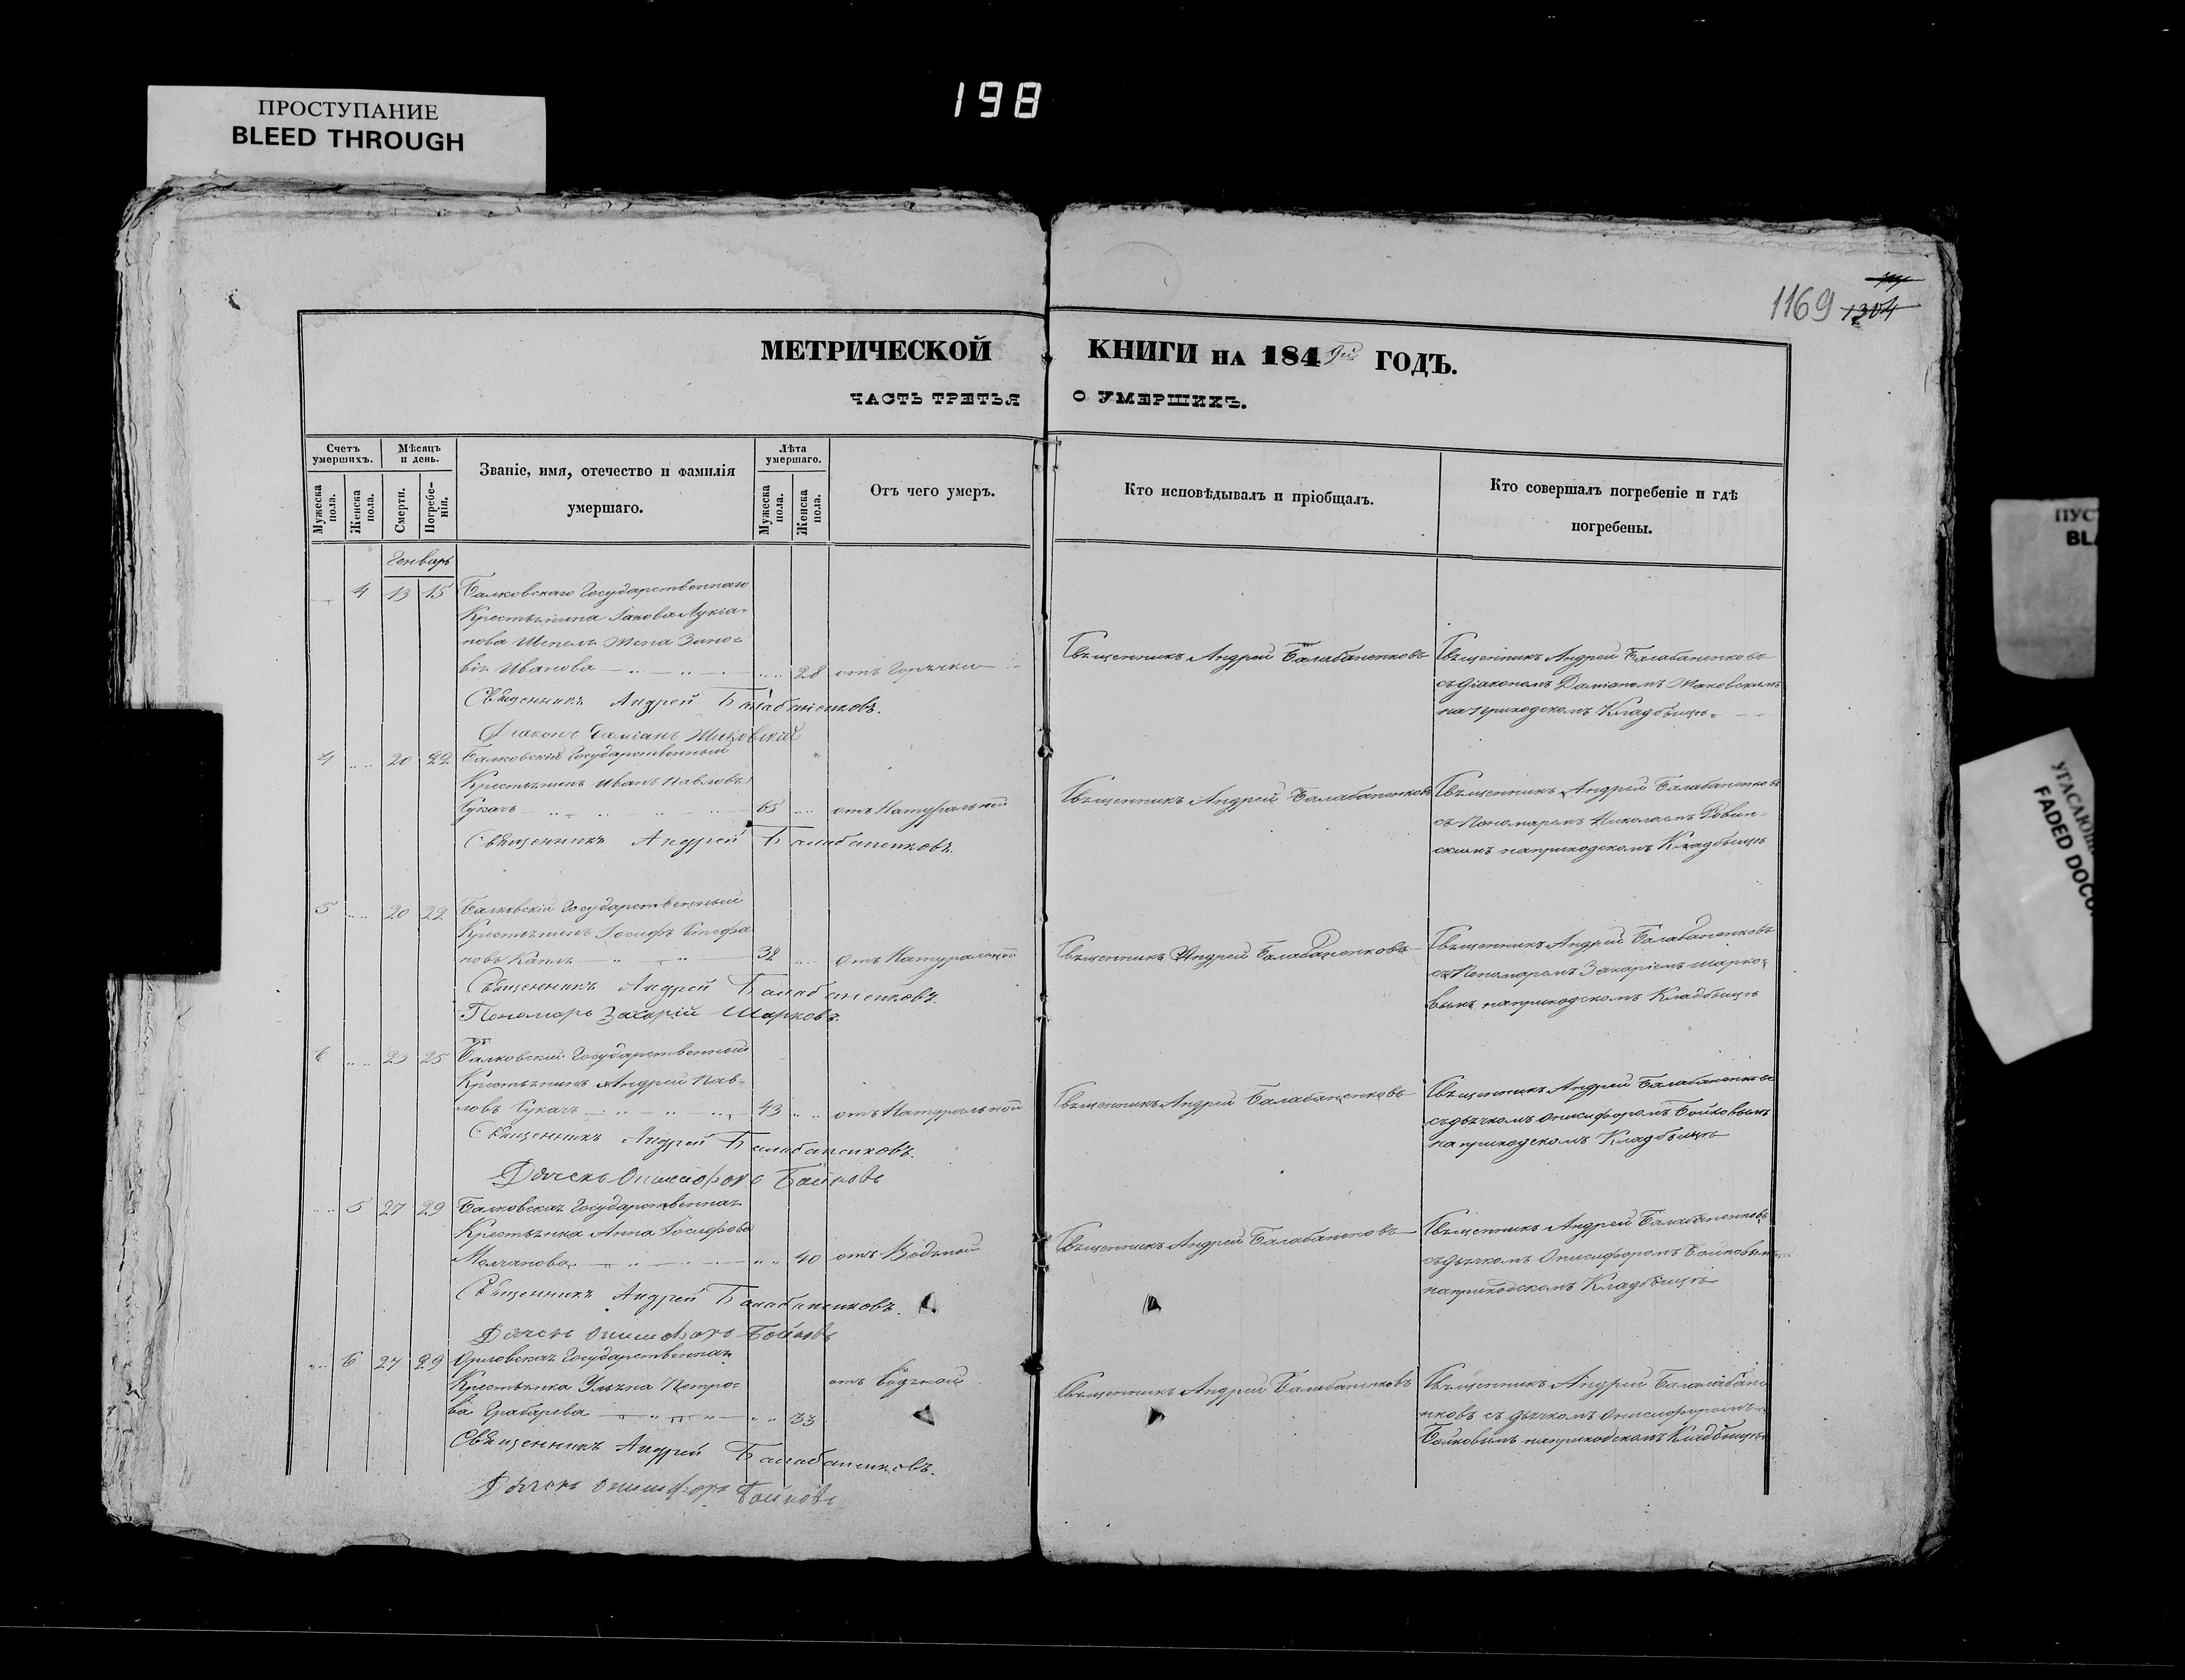 ПРОСТУПАНИЕ
BLEED THROUGH
198
1169 1304
МЕТРИЧЕСКОЙ КНИГИ НА 1849й ГОДЪ.
ЧАСТЬ ТРЕТЬЯ О УМЕРШИХЪ.
Счетъ умершихъ.
Мужеска пола.
Женска пола.
Мѣсяцъ и день.
Смерти.
Погребенія.
Званіе, имя, отечество и фамилія
умершаго.
Лѣта умершаго.
Мужеска пола.
Женска пола.
Отъ чего умеръ.
Кто исповѣдывалъ и пріобщалъ.
Кто совершалъ погребеніе и гдѣ
погребены.
Генварь
4 13 15 Балковскаго Государственнаго
Крестьянина Іакова Лукіа-
нова Шпелъ Жена Зино-
вія Иванова 28 отъ Горячки
Священникъ Андрей Балабаненковъ
Священникъ Андрей Балабаненковъ
съ діакономъ Даміаномъ Маковскимъ
на приходскомъ Кладбищѣ
Священникъ Андрей Балабаненковъ.
Діаконъ Даміанъ Маковскій
4 20 22 Балковскій Государственный
Крестьянинъ Иванъ Павловъ
Сукачъ 65 отъ Натуральной
Священникъ Андрей Балабаненковъ
Священникъ Андрей Балабаненковъ
съ Пономаремъ Николаемъ Ровин-
скимъ на приходскомъ Кладбищѣ
Священникъ Андрей Балабаненковъ.
5 20 22 Балковскій Государственный
Крестьянинъ Іосифъ Стефа
новъ 32 отъ Натуральной
Священникъ Андрей Балабаненковъ
Священникъ Андрей Балабаненковъ
съ Пономаремъ Захаріемъ Шарко-
вымъ на приходскомъ Кладбищѣ
Священникъ Андрей Балабаненковъ.
Пономарь Захарій Шарковъ.
6 23 25 Балковскій Государственный
Крестьянинъ Андрей Пав-
ловъ Сукачъ 43 отъ Натуральной
Священникъ Андрей Балабаненковъ
Священникъ Андрей Балабаненковъ
съ дьячкомъ Онисифоромъ Бойковымъ
на приходскомъ Кладбищѣ
Священникъ Андрей Балабаненковъ.
Дьячекъ Онисифоръ Бойковъ
5 27 29 Балковская Государственная
Крестьянка Анна Іосифова
Молчанова 40 отъ Водяной
Священникъ Андрей Балабаненковъ
Священникъ Андрей Балабаненковъ
съ дьячкомъ Онисифоромъ Бойковымъ
на приходскомъ Кладбищѣ
Священникъ Андрей Балабаненковъ.
Дьячекъ Онисифоръ Бойковъ
6 27 29 Орловская Государственная
Крестьянка Ульяна Петро-
ва Грабарева 33 отъ Водяной
Священникъ Андрей Балабаненковъ
Священникъ Андрей Балабане
нковъ съ дьячкомъ Онисифоромъ
Бойковымъ на приходскомъ Кладбищѣ
Священникъ Андрей Балабаненковъ.
Дьячекъ Онисифоръ Бойковъ
ПУС
BLA
УГАСАЮЩ
FADED DOCU